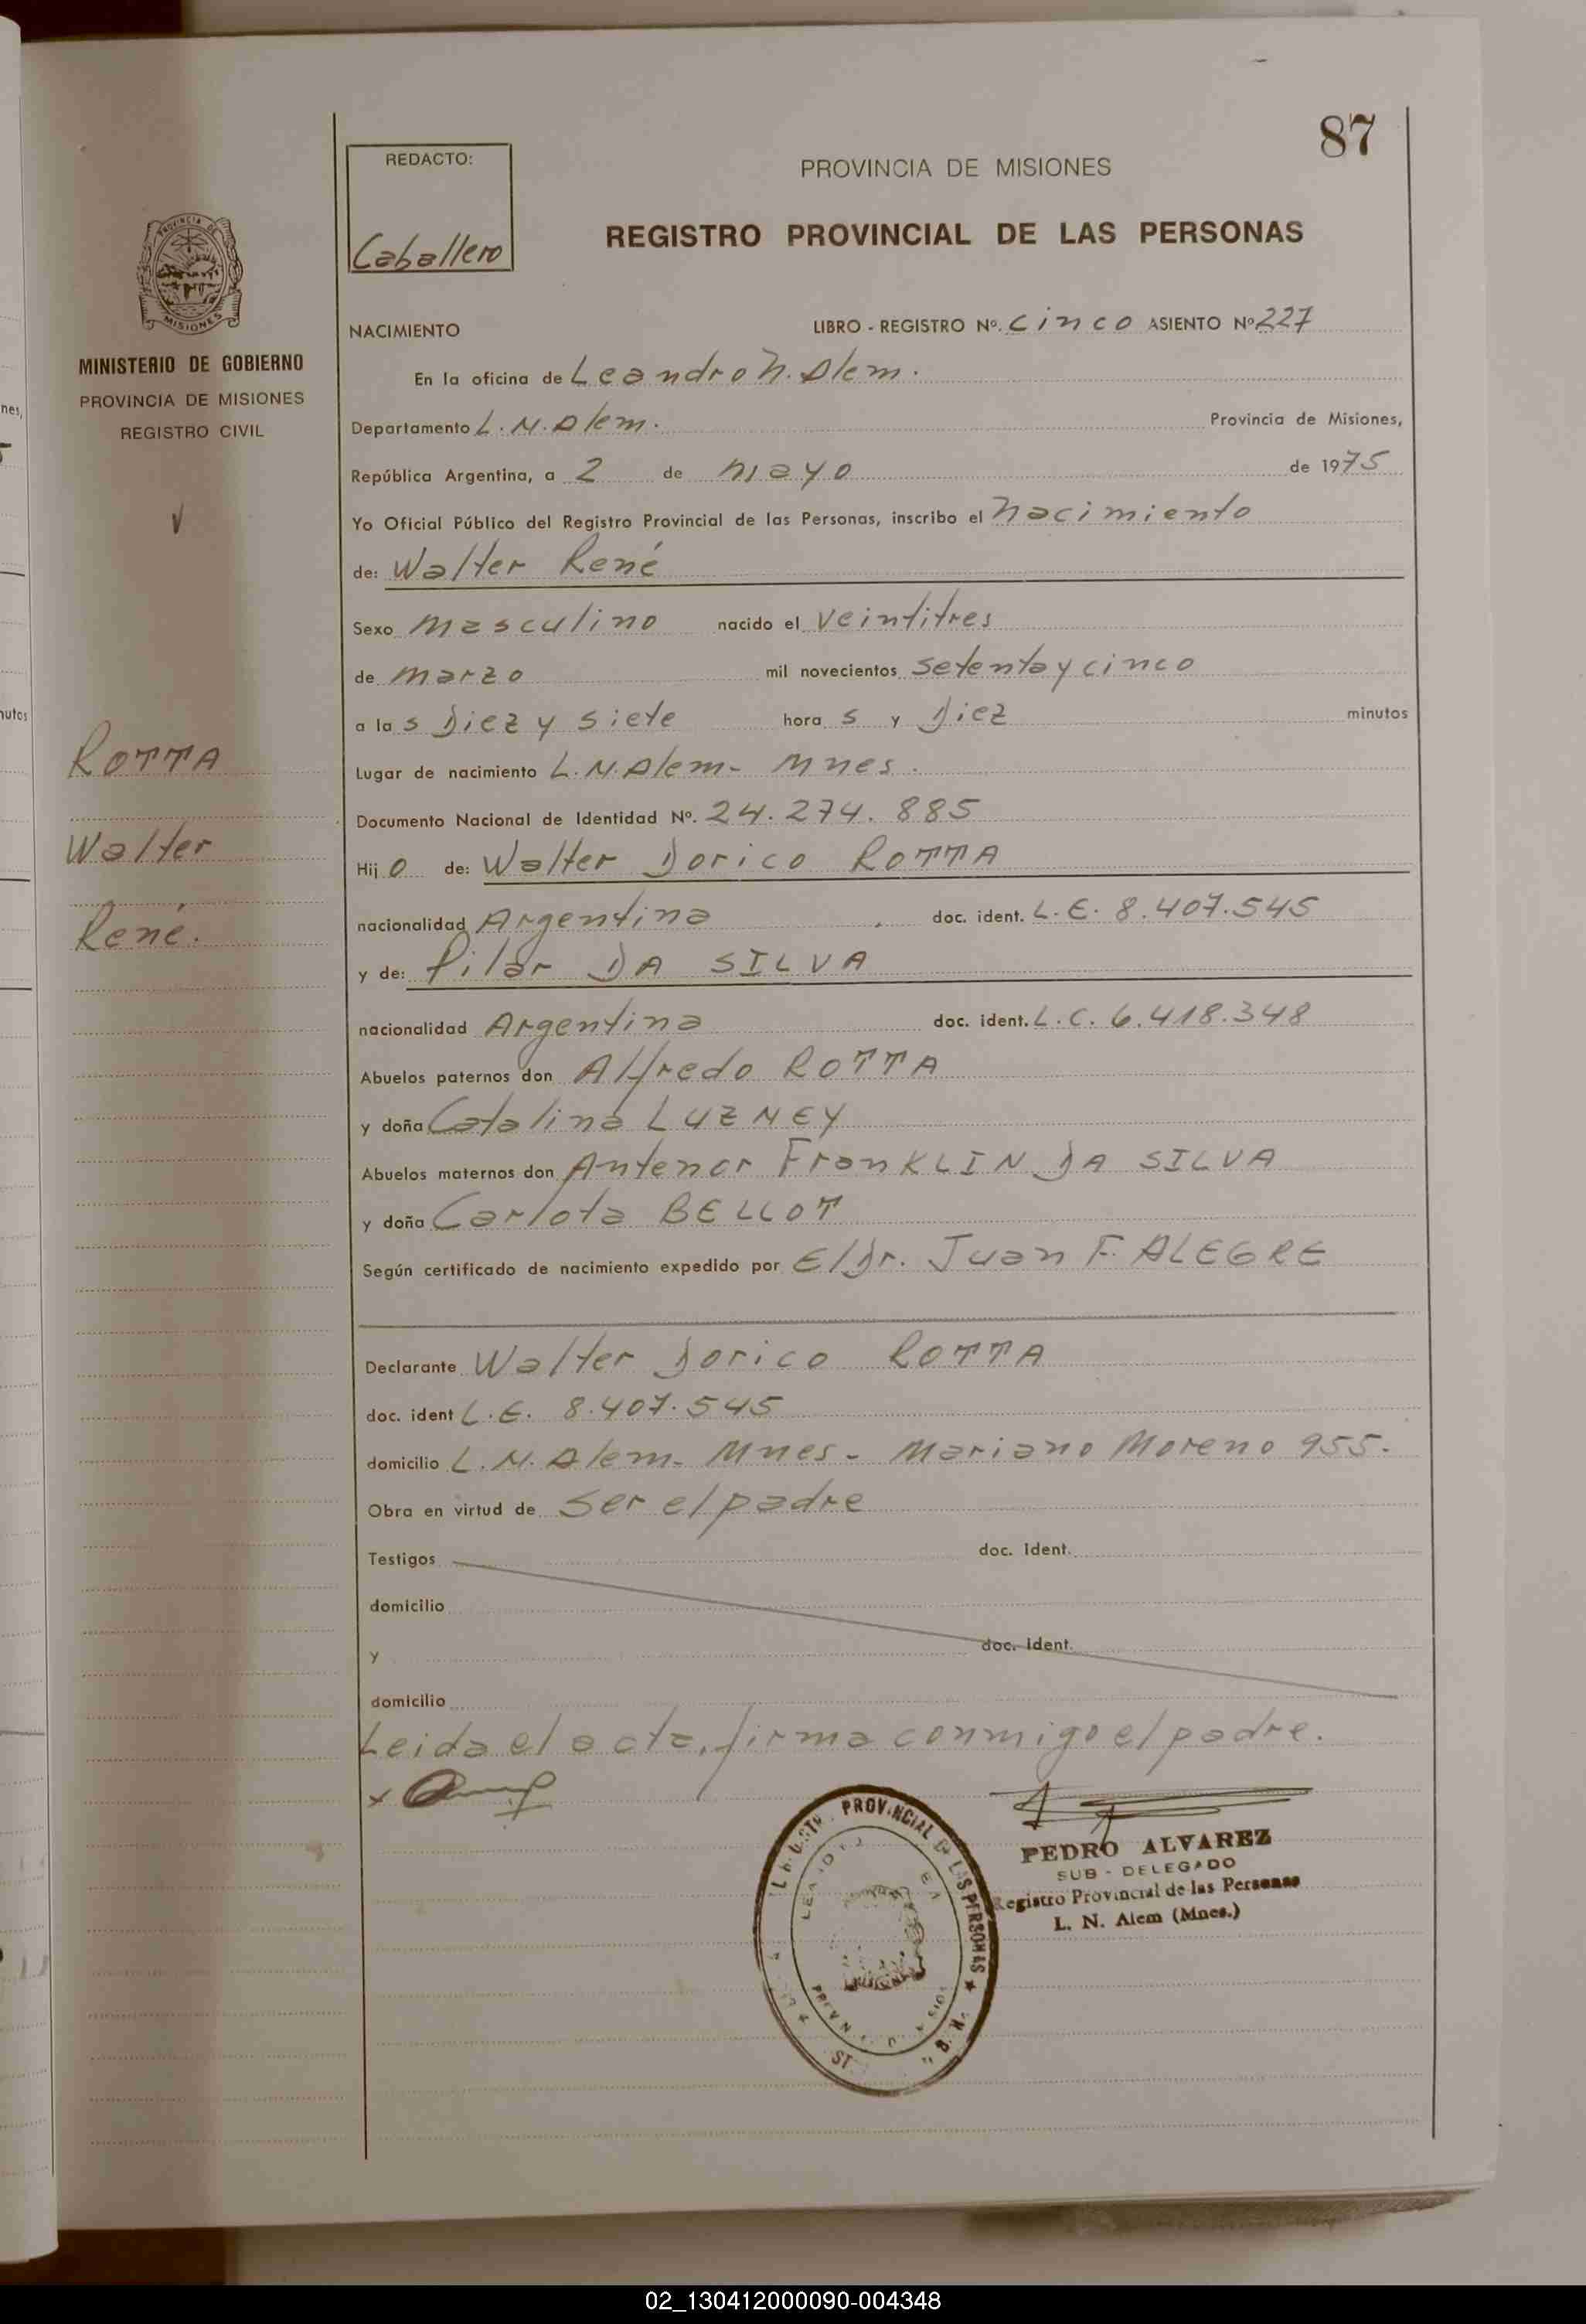 87
REDACTO:
Caballero
PROVINCIA DE MISIONES
REGISTRO PROVINCIAL DE LAS PERSONAS
MINISTERIO DE GOBIERNO
PROVINCIA DE MISIONES
REGISTRO CIVIL
ROTTA
Walter
René.
NACIMIENTO LIBRO - REGISTRO Nº. Cinco ASIENTO Nº 227
En la oficina de Leandro N. Alem.
Departamento L. N. Alem. Provincia de Misiones,
República Argentina, a 2 de mayo de 1975
Yo Oficial Público del Registro Provincial de las Personas, inscribo el nacimiento
de: Walter René
Sexo masculino nacido el veintitres
de marzo mil novecientos setenta y cinco
a las Diez y siete horas y Diez minutos
Lugar de nacimiento L. N. Alem - Mnes.
Documento Nacional de Identidad Nº. 24.274.885
Hijo de: Walter Dorico ROTTA
nacionalidad Argentina doc. ident. L. E. 8.407.545
y de: Pilar DA SILVA
nacionalidad Argentina doc. ident. L. C. 6.418.348
Abuelos paternos don Alfredo ROTTA
y doña Catalina LUZNEY
Abuelos maternos don Antenor FranKLIN DA SILVA
y doña Carlota BELLOT
Según certificado de nacimiento expedido por El Dr. Juan F. ALEGRE
Declarante Walter Dorico ROTTA
doc. ident L. E. 8.407.545
domicilio L. N. Alem - Mnes - Mariano Moreno 955.
Obra en virtud de ser el padre
Testigos doc. ident.
domicilio
y doc. ident.
domicilio
Leida el acta, firma conmigo el padre.
PEDRO ALVAREZ
SUB - DELEGADO
Registro Provincial de las Personas
L. N. Alem (Mnes.)
PROVINCIAL DE LAS PERSONAS
02_130412000090-004348